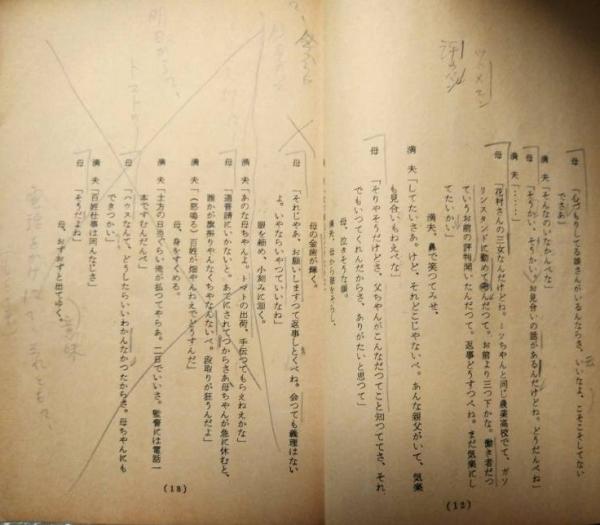 母 「心づもりしてる娘さんがいるんならさ、いいなよ、こそこそしてない
でさあ」
満夫 「そんなのいなかんべな」
母 「そうかい、そうかい。お見合いの話があるんだけどね。どうだんべね」
満夫 「……」
母 「花村さんの三女なんだけどね。ミッちゃんと同じ農業高校でて、ガソ
リンスタンドに勤めてるんだって。お前より三つ下かな。働き者だつ
ていうお前の評判聞いたんだって。返事どうすっぺね。まだ気楽にし
てたいかい」
満夫、鼻で笑ってみせ、
満夫 「してたいさあ。けど、それどこじゃないべ。あんな親父がいて、気楽
も見合いもねえべな」
母 「そりゃそうだけどさ、父ちゃんがこんなだってこと知っててさ、それ
でもいってくれんだからさ、ありがたいと思って」
母、泣きそうな顔。
満夫、母から顔をそらし、
(12)
母の金歯が輝く。
母 「それじゃあ、お願いしますって返事しとくべね。会っても義理はない
よ。いやならいやっていいなね」
眼を細め、小刻みに頷く。
満夫 「あのな母ちゃんよ。トマトの出荷、手伝ってもらえねえかな」
母 「道普請にいかないと、あてにされてっからさあ母ちゃんが急に休むと、
誰かが旗振りやんなくちゃなんないべ。段取りが狂うんだよ」
満夫 「(怒鳴る)百姓が畑やんねえでどうすんだ」
母、身をすくめる。
満夫 「土方の日当ぐらい俺が払ってやらあ。二百でいいさ。監督には電話一
本ですむんだんべ」
母 「ハウスなんて、どうしたらいいわかんなかったからさ。母ちゃんにも
できっかい」
満夫 「百姓仕事は同んなじさ」
母 「そうだよね」
母、おずおずと出てゆく。
(13)